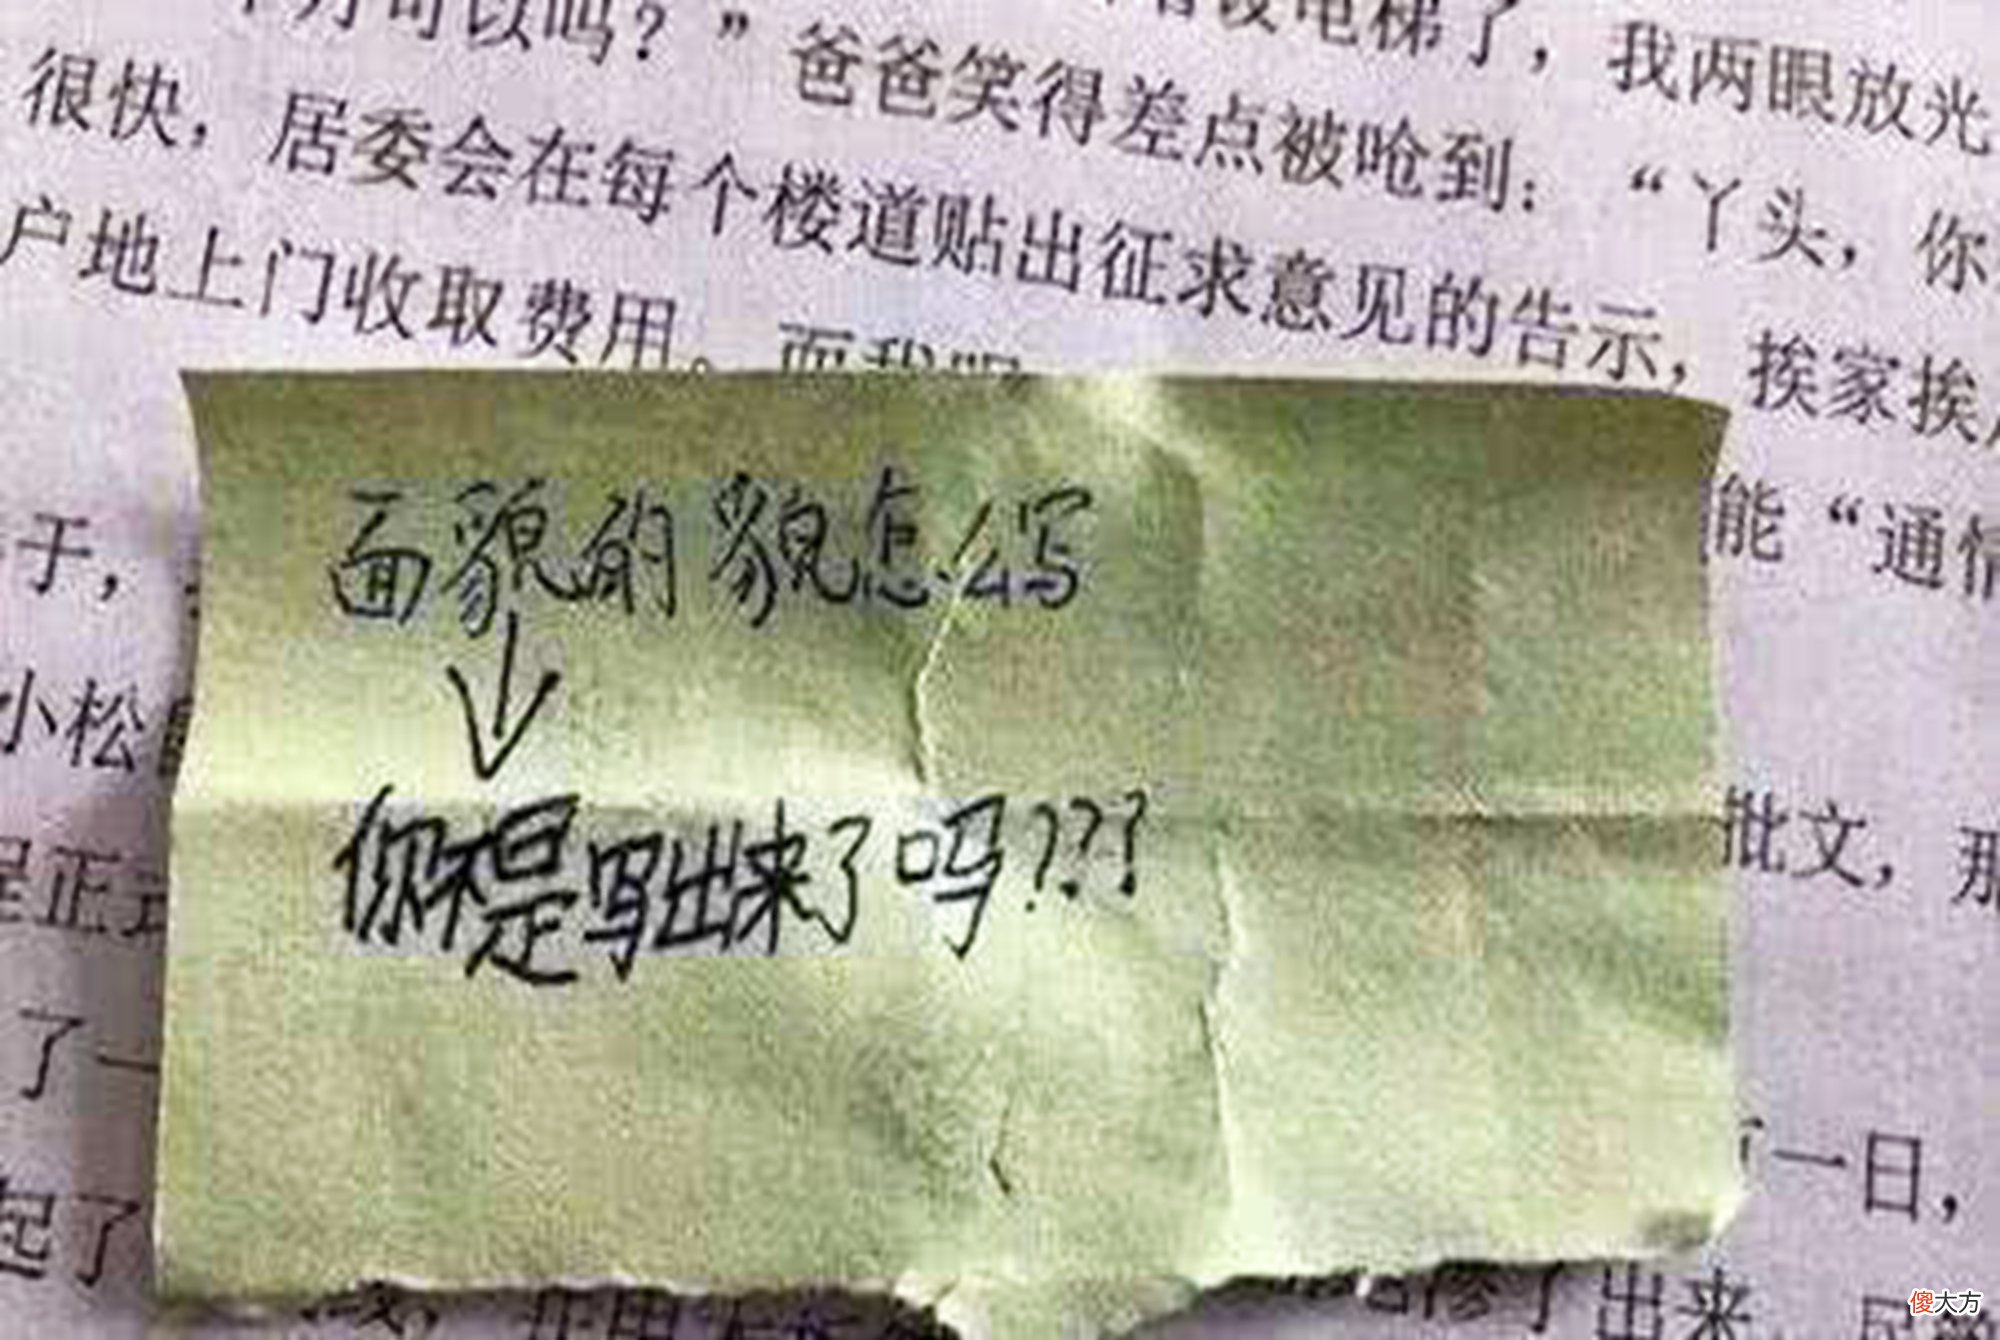 可以吗？”爸爸笑得差点被呛到：“丫头，你
电梯了，我两眼放光
很快，居委会在每个楼道贴出征求意见的告示，挨家挨
户地上门收取费用。而我呢
面貌的貌怎么写
↓
你不是写出来了吗???
能“通情
于，
小松
批文，那
正式
了一
一日，
起了
了出来
傻大方